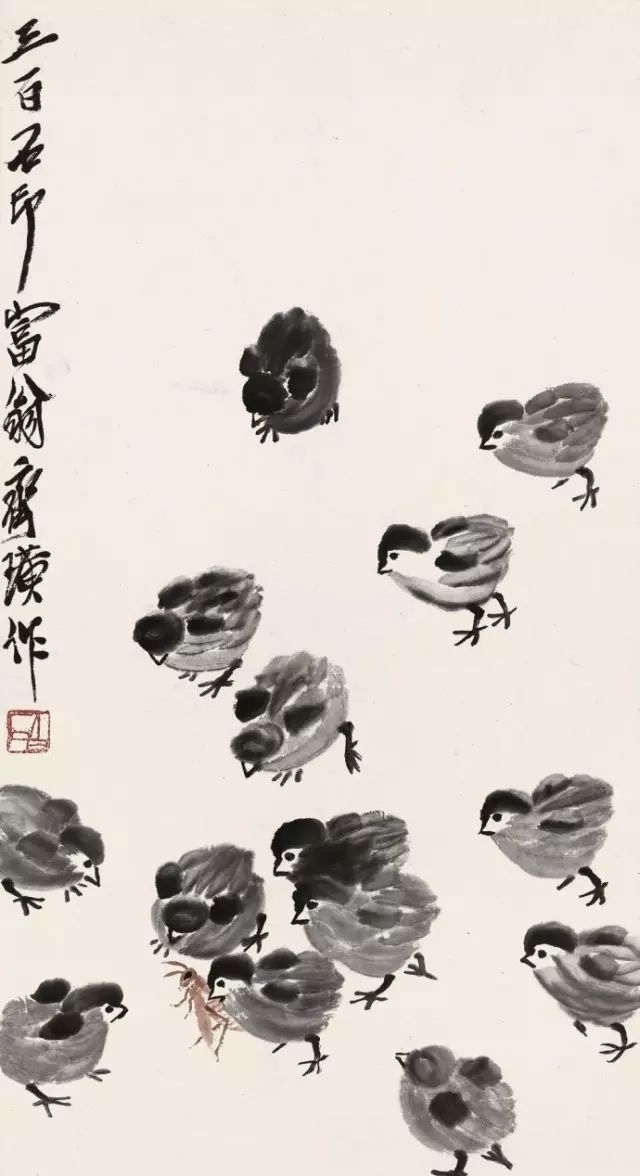 三百石印富翁齊璜作